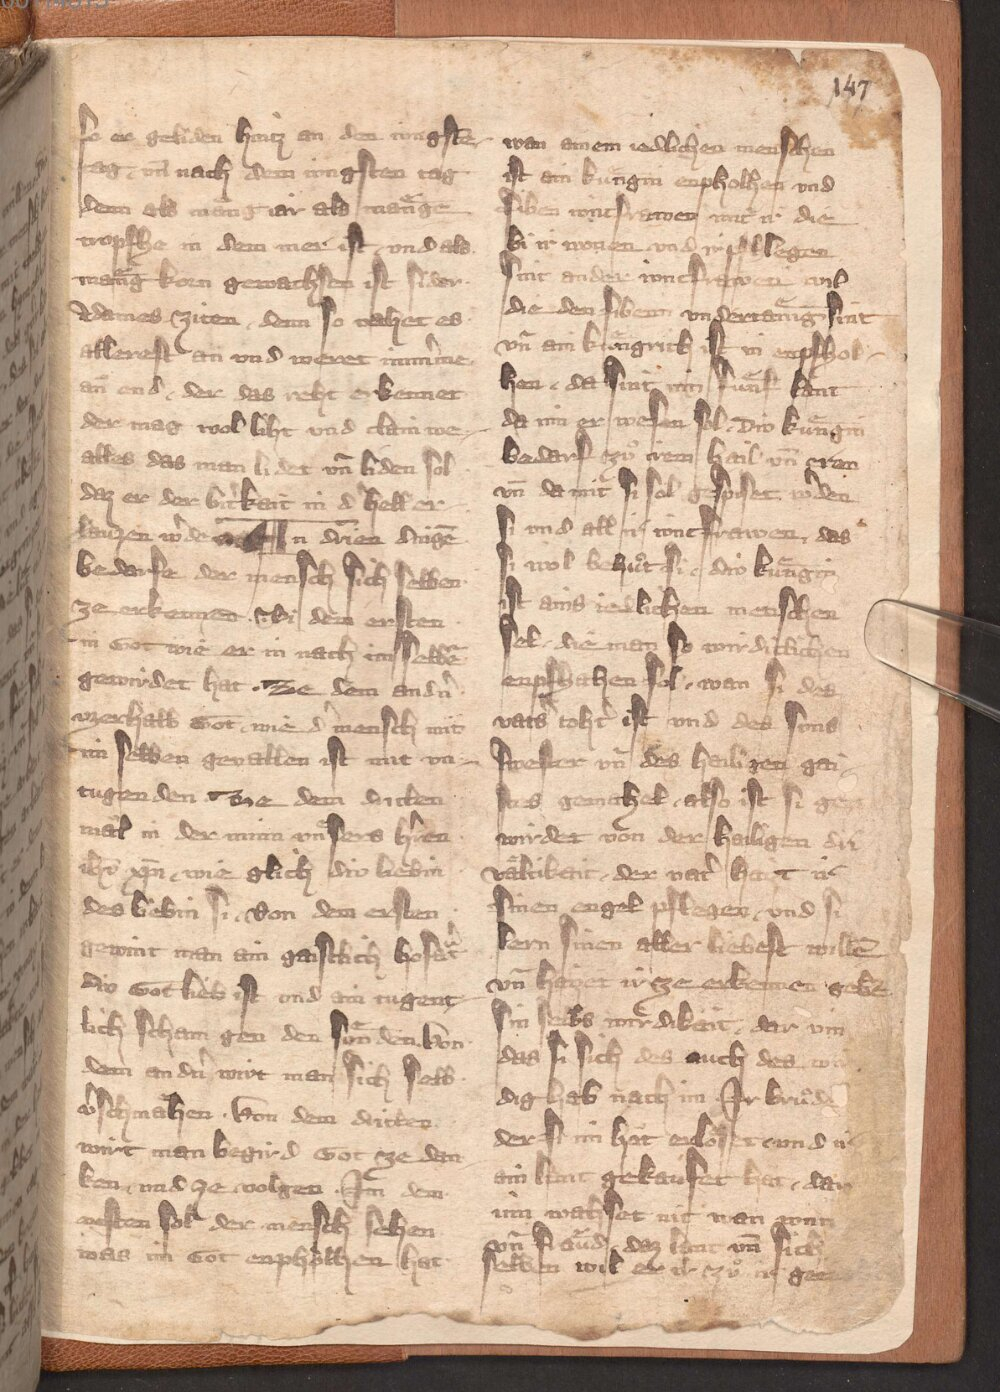 147
so er geliden hintz an den iungste
tag, vn̄ nach dem iungsten tag
denn als mang iar als mange
tropfhe in dem mer ist, vnd als
mang korn gewachsen ist sider
Adames ziten, denn so nahet es
allerest an vnd weret immͤme
an end, der das reht erkennet
der mag wol liht vnd clain we
alles das man lidet vn̄ liden sol
daz er der bit͛kait in d͛ hell er
lauzen w͛de In drien dinge̅
bedarfe der mensch sich selben
ze erkennen. Bi dem ersten
in Got wie er in nach im selbē
gewirdet hat. Ze dem and͛n
vzerhalb Got, wie d͛ mensch mit
im selben geuallen ist mit vn
tugenden. Ze dem dritten
mal in der minn vnsers h͛ren
ih͞u xp͞i, wie glich div liebin
des liebin si. Von dem ersten
gewint man ain gaistlich hofart
div Got lieb ist vnd ain tugent
lich scham gen den sunden. Von
dem and͛n wirt man sich selb
v͛schmahen. Von dem dritten
wirt man begird Got ze dan
ken, vnd ze volgen. In dem
ersten sol der mensch sehen
was im Got enpholhen hat
wan ainem iedlichen menschen
ist ain kungin enpholhen vnd
siben iuncfrawen mit ir die
bi ir wonen vnd ir pfllegen
Sint ander iuncfrawen vil
die den sibenn vndertanig sint
vn̄ ain kungrich ist in enpfhol
hen, da sint inn funf lant
da inn er wesen sol. Div kungin
bedarf zuͦ irem hail vn̄ eren
vn̄ da mit si sol gespiset w͛den
si vnd all ir iuncfrawen, das
si wol behuͤt si, div kungin
ist ains iedlichen menschen
sel, die man so wirdiclichen
enpfhahen sol, wan si des
vaters toht͛ ist vnd des suns
swester vn̄ des heiligen gai
stes gemahel, also ist si ge
wirdet von der hailigen dri
valtikait, der vat͛ hait ir
sinen engel pflegen, vnd si
lern sinen aller liebest willē
vn̄ haizet ir ze erkennen gebē
Sin selbs wirdikait, dar vm
das si sich des auch des
dig hab nach im. Ir bruͦd
der si im hat erloset vnd ir
ain lant gekaufet hat, dar
inn wahset nit wan wun
vn̄ freud, daz lant vn̄ sich
selben wil er ir zuͦ ir